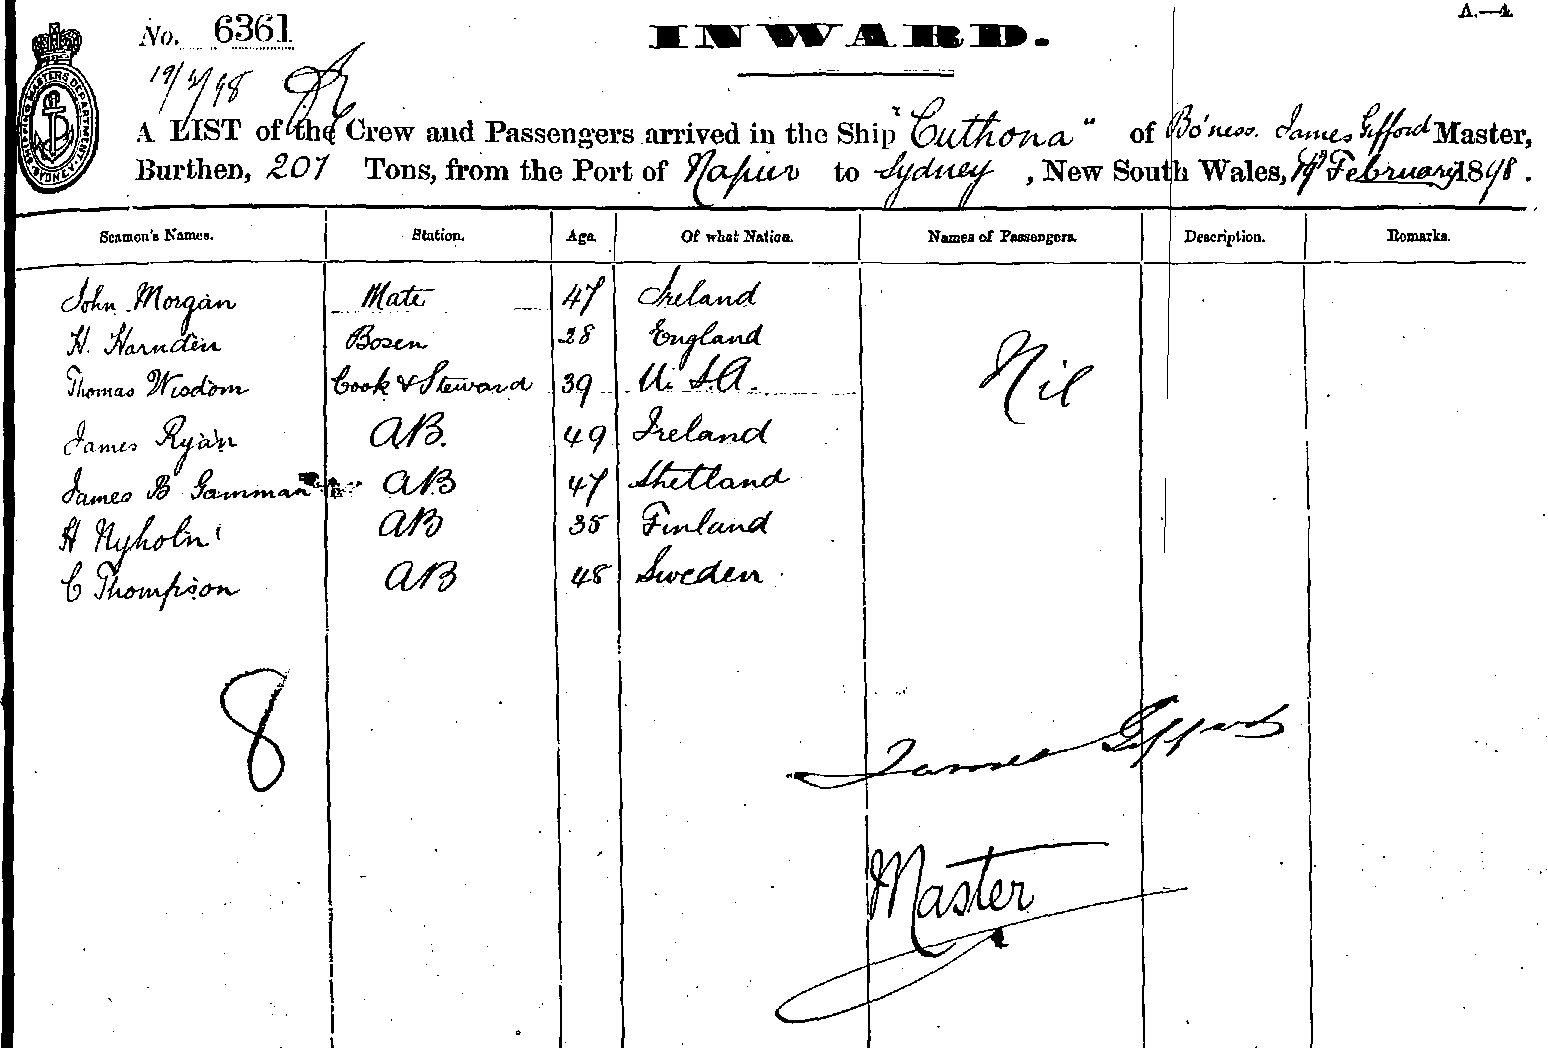 A.—4
No. 6361
INWARD.
19/2/98
A LIST of the Crew and Passengers arrived in the Ship "Cuthona" of Bo'ness. James Gifford Master,
Burthen, 207 Tons, from the Port of Napier to Sydney, New South Wales, February 1898.
SHIPPING MASTERS DEPARTMENT. SYDNEY.
Seamen's Names. Station. Age. Of what Nation. Names of Passengers. Description. Remarks.
John Morgan Mate 47 Ireland
H. Harnden Bosen 28 England
Thomas Wisdom Cook & Steward 39 U.S.A.
James Ryan AB. 49 Ireland
James B Gamman AB 47 Shetland
H Nyholm AB 35 Finland
C Thompson AB 48 Sweden
Nil
8
James Gifford
Master